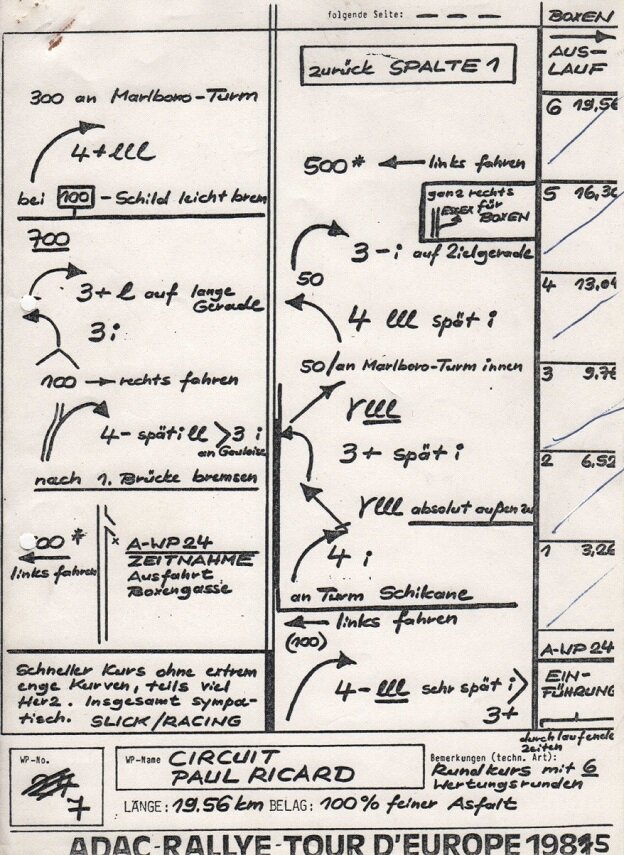 folgende Seite:
BOXEN
AUS-
LAUF
zurück SPALTE 1
300 an Marlboro-Turm
4+lll
bei 100 - Schild leicht brem
700
3+l auf lange
Gerade
3i
100 → rechts fahren
4- spät ill > 3 i
an Gauloise
nach 1. Brücke bremsen
00*
links fahren
A-WP 24
ZEITNAHME
Ausfahrt
Boxengasse
Schneller Kurs ohne extrem
enge Kurven, teils viel
Herz. Insgesamt sympa-
tisch. SLICK/RACING
500* ← links fahren
ganz rechts
ESSEX für
BOXEN
3-i auf Zielgerade
50
4 lll spät i
50/an Marlboro-Turm innen
rlll
3+ spät i
rlll absolut außen zu
4 i
an Turm Schikane
← links fahren
(100)
4-lll sehr spät i >
3+
6 19,56
5 16,30
4 13,04
3 9,78
2 6,52
1 3,26
A-WP 24
EIN-
FÜHRUNG
durchlaufende
Zeiten
WP-No.
7
WP-Name CIRCUIT
PAUL RICARD
Bemerkungen (techn. Art):
Rundkurs mit 6
Wertungsrunden
LÄNGE: 19.56 km BELAG: 100% feiner Asfalt
ADAC-RALLYE-TOUR D'EUROPE 1985